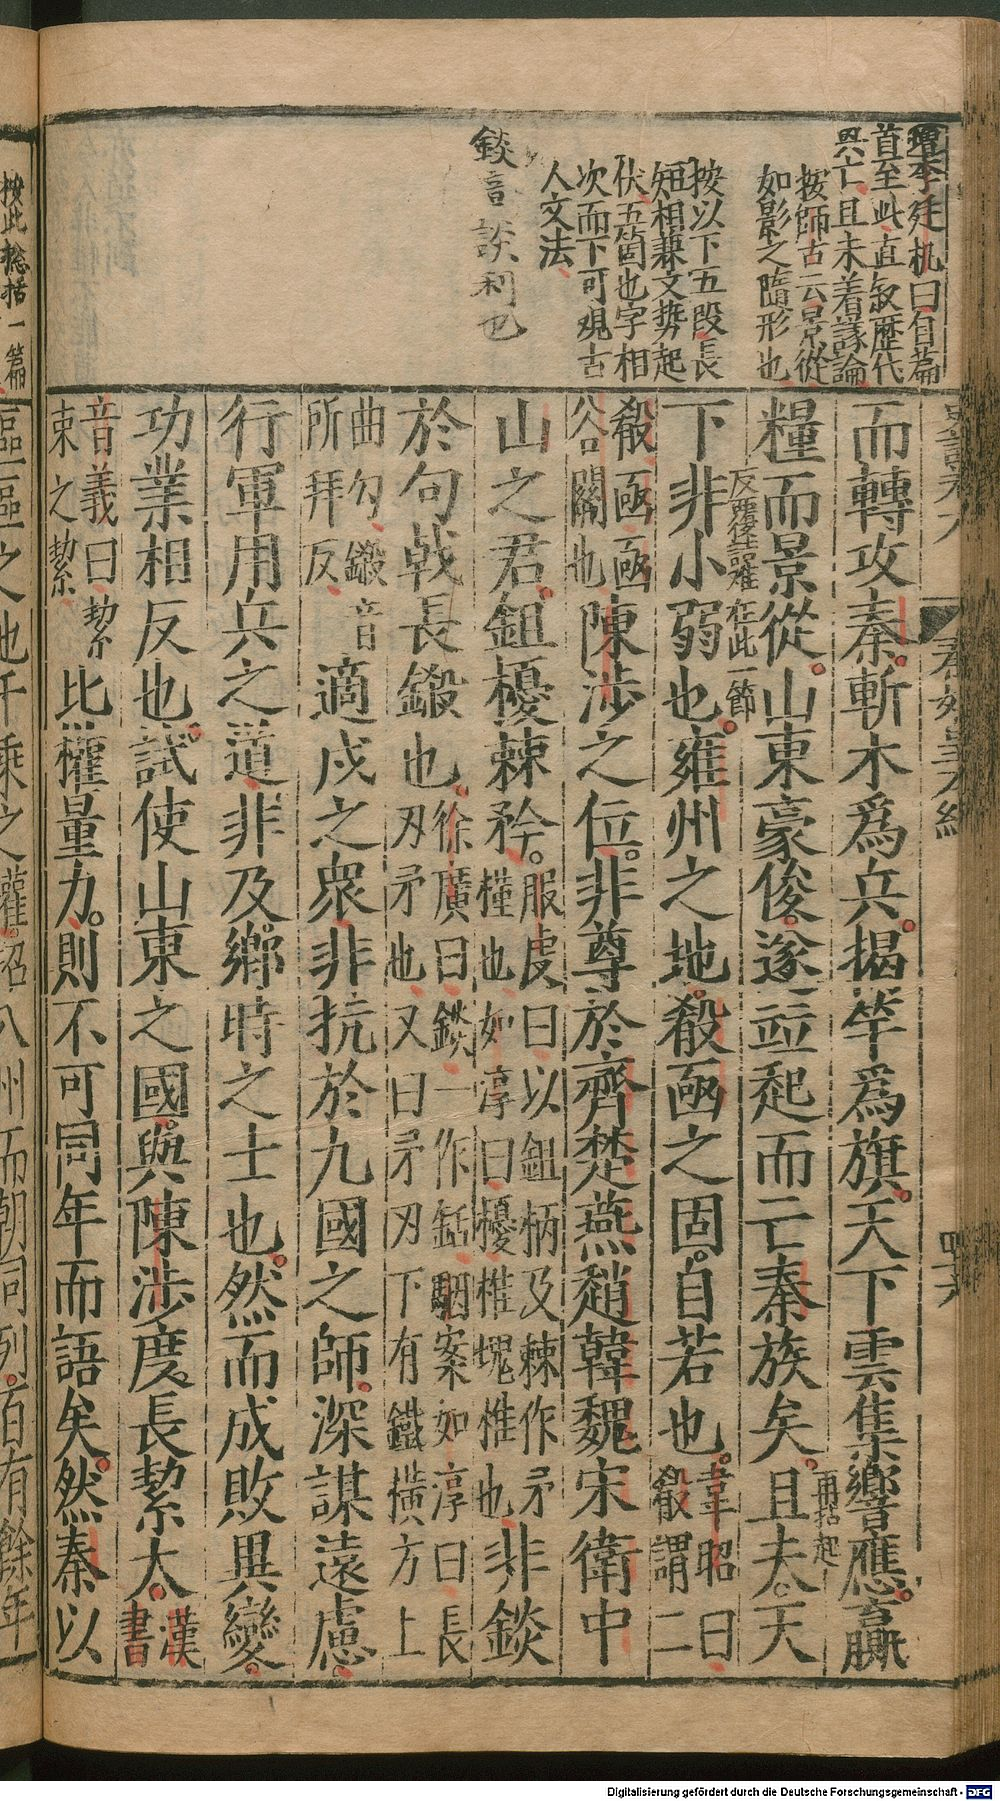 增李廷机曰自篇
首至此直叙歷代
興亡且未着議論
按師古云景從
如影之隨形也
按以下五段長
短相兼文勢起
伏五箇也字相
次而下可觀古
人文法
錟音談利也
而轉攻秦斬木爲兵揭竿爲旗天下雲集響應贏
糧而景從山東豪俊遂並起而亡秦族矣再括起且夫天
反覆議難在此一節
下非小弱也雍州之地殽函之固自若也韋昭曰殽謂二
殽函函谷關也陳涉之位非尊於齊楚燕趙韓魏宋衛中
山之君鉏櫌棘矜服虔曰以鉏柄及棘作矛槿也如淳曰櫌椎塊椎也非錟
於句戟長鎩也徐廣曰錟一作銛駰案如淳曰長刃矛也又曰矛刃下有鐵橫方上
曲勾鎩音所拜反適戍之衆非抗於九國之師深謀遠慮
行軍用兵之道非及鄉時之士也然而成敗異變
功業相反也試使山東之國與陳涉度長絜大漢書
音義曰絜束之絜比權量力則不可同年而語矣然秦以
四十六
按此総括一篇
區區之地千乘之權招八州而朝同列百有餘年
Digitalisierung gefördert durch die Deutsche Forschungsgemeinschaft - DFG